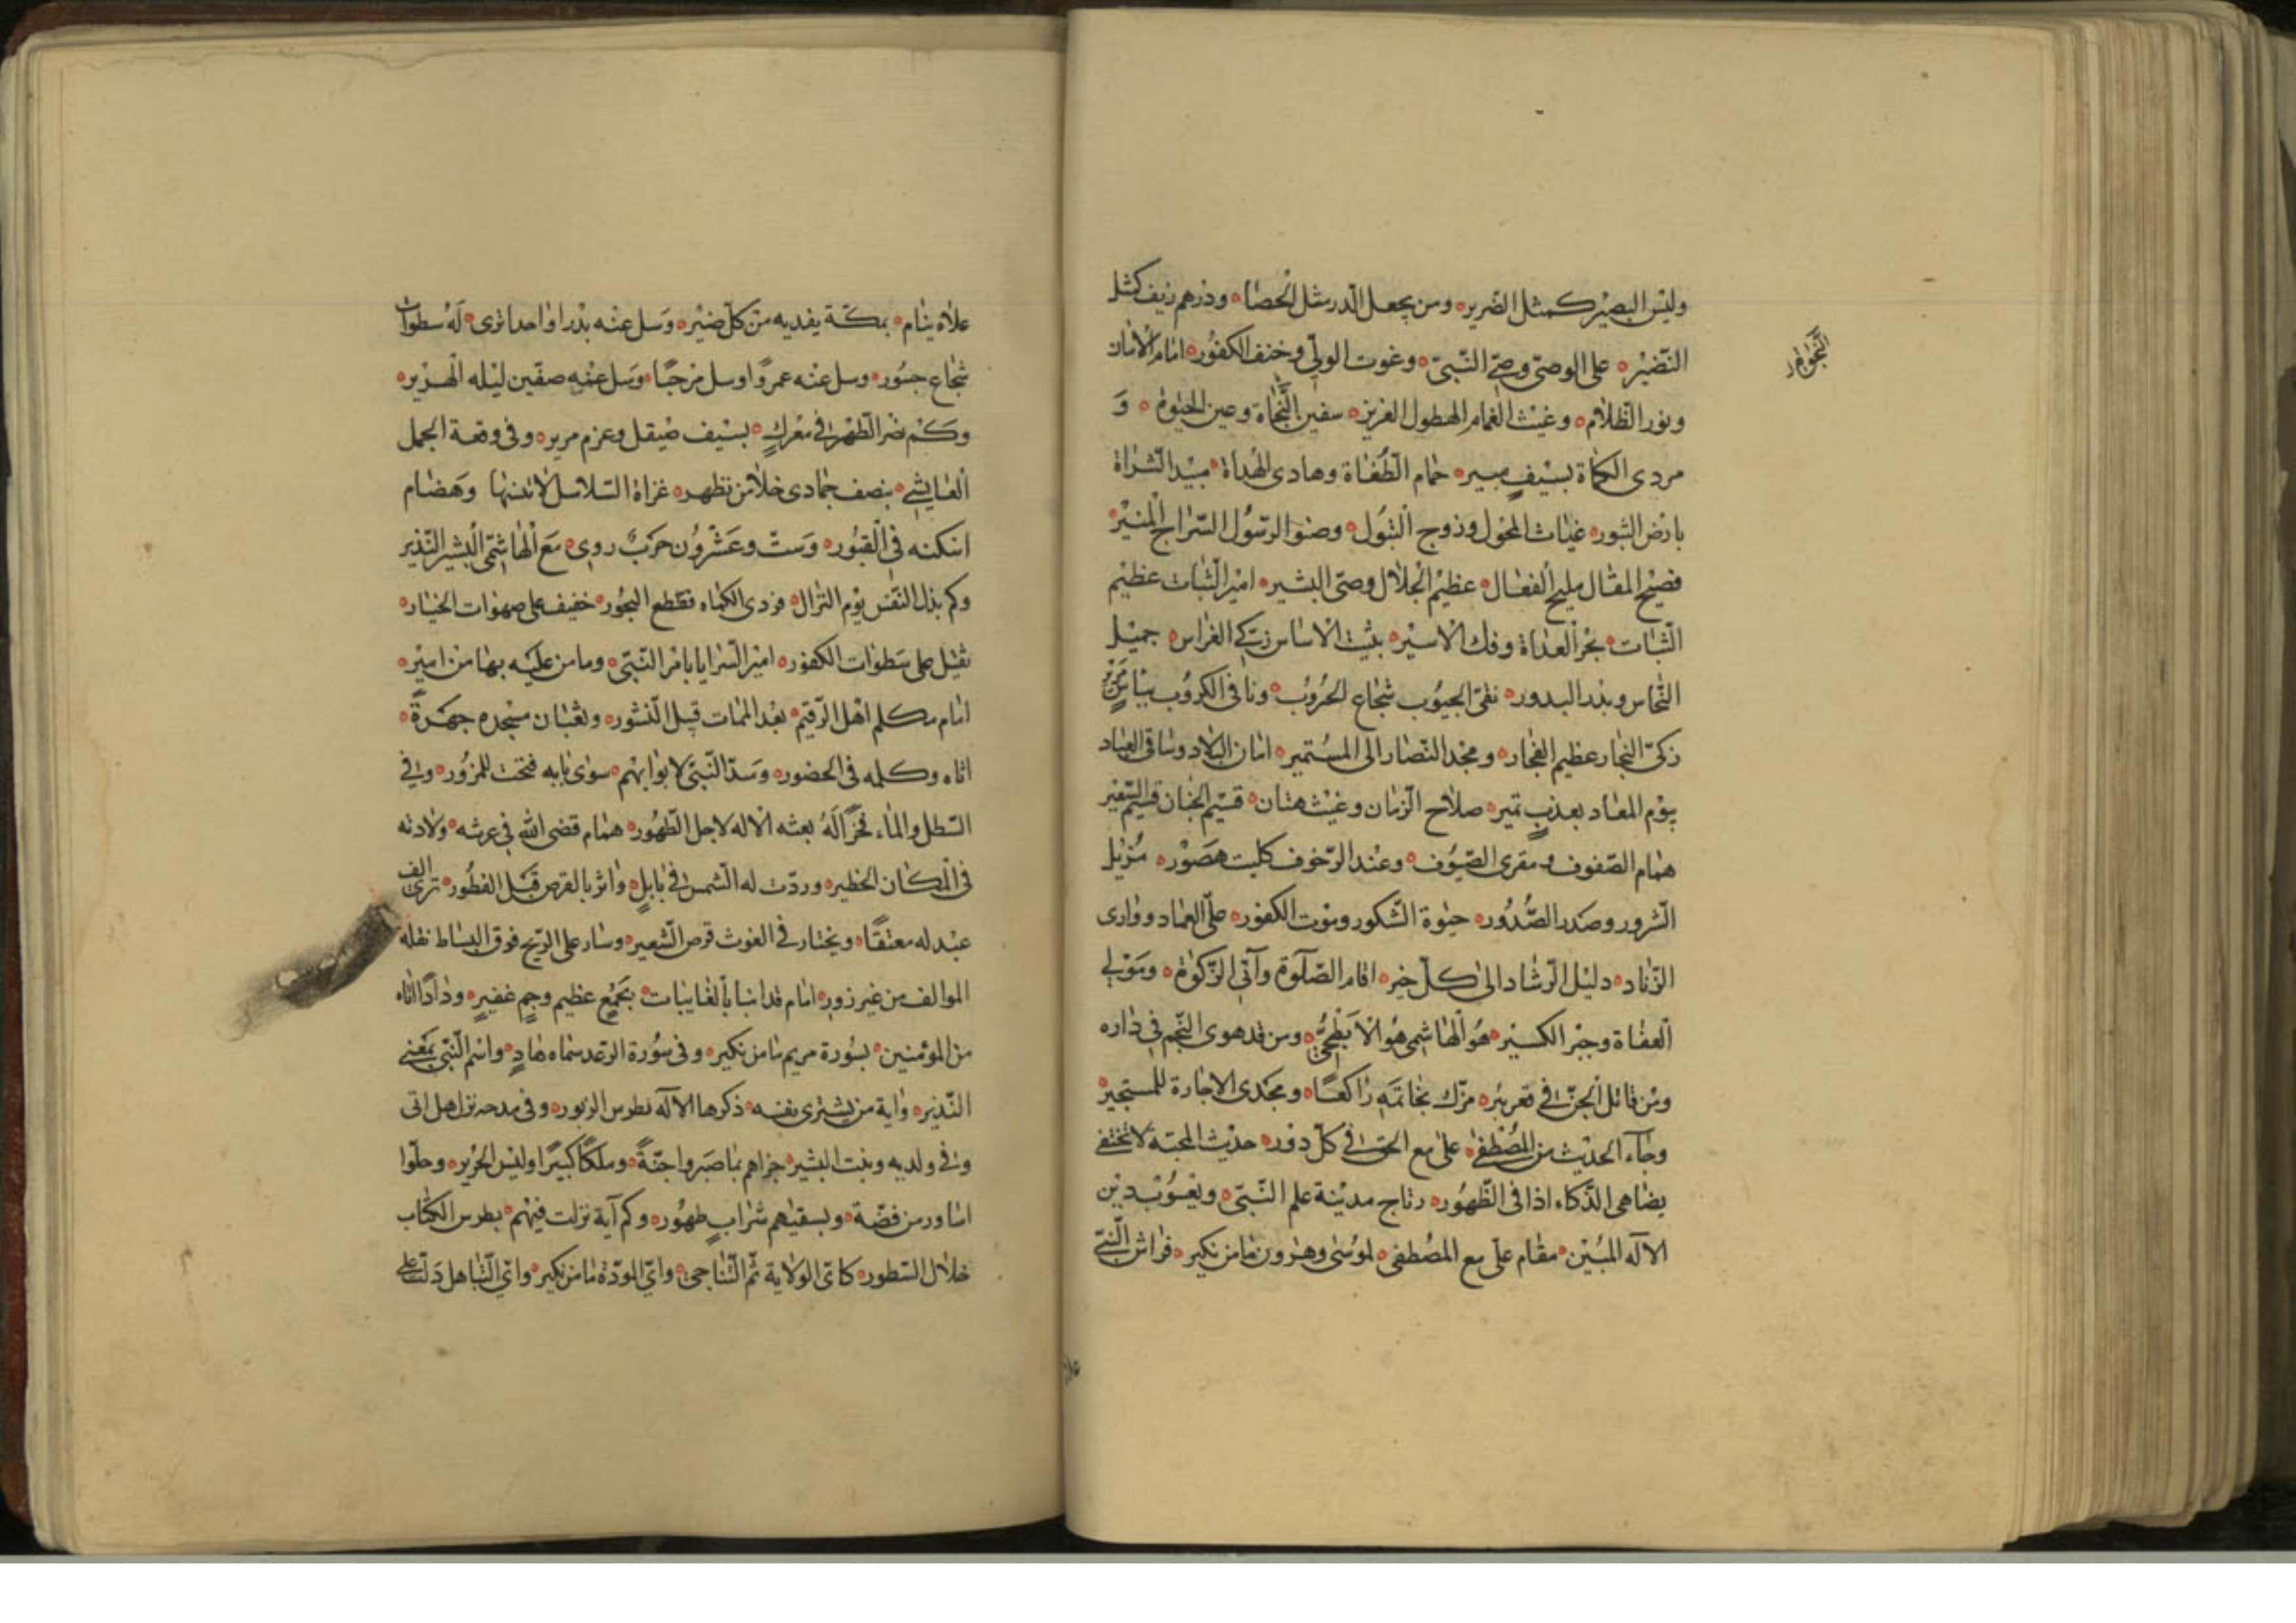 وليس البصير كمثل الضرير ومن يجعل الدر مثل الحصا ودرهم زيف كمثل
النضير على الوصى وصى النبى وغوث الولى وحتف الكفور امام الانام
ونور الظلام وغيث الغمام الهطول الغزير سفين النجاة وعين الحيوة و
مردى الكماة بسيف مبير حمام الطغاة وهادى الهداة مبيد الشراة
بارض الثبور غياث المحول وزوج البتول وصنو الرسول السراج المنير
فصيح المقال مليح الفعال عظيم الجلال وصى البشير امير الثبات عظيم
الثبات بحر العداة وفك الاسير بثيت الاساس زكى الغراس جميل
النحاس وبدر البدور نقى الجيوب شجاع الحروب ونافى الكروب بباس
زكى النجار عظيم الفجار ومجد النضار الى المستمير امان البلاد وساقى العباد
يوم المعاد بعذب نمير صلاح الزمان وغيث هتان قسيم الجنان قسيم السعير
همام الصفوف ومقرى الضيوف وعند الزحوف كليث هصور مزيل
الشرور وصدر الصدور حيوة الشكور وموت الكفور على العماد ووارى
الزناد دليل الرشاد الى كل خير اقام الصلوة وآتى الزكوة ومولى
العفاة وجبر الكسير هو الهاشمى هو الابطحى ومن قد هوى النجم فى داره
ومن قاتل الجن فى قعر بئر مزك بخاتمه راكعا ومجدى الاجارة للمستجير
وجاء الحديث من المصطفى على مع الحق فى كل دور حديث المحبة لا تختفى
يضاهى الذكاء اذا فى الظهور رتاج مدينة علم النبى ويعسوب دين
الاله المبين مقام على مع المصطفى لموسى وهرون ما من نكير فراش النبى
علاه ينام بمكة يفديه من كل ضير وسل عنه بدرا واحدا ترى له سطوات
شجاع جسور وسل عنه عمروا وسل مرحبا وسل عنه صفين ليله الهرير
وكم نصر الطهر فى معرك بسيف صيقل وعزم مرير وفى وقعة الجمل
العايشى بنصف جمادى خلا من تظهر غزاة السلاسل لا تنسها وهضام
اسكنه فى القبور وست وعشرون حرب روى مع الهاشمى البشير النذير
وكم بذل النفس يوم النزال فردى الكماه فقطع البحور خفيف على صهوات الخيار
ثقيل على سطوات الكفور امير السرايا بامر النبى وما من عليه بها من امير
امام مكلم اهل الرقيم بعد الممات قبل النشور وثعبان مسجده جهرة
اتاه وكلمه فى الحضور وسد النبى لابوابهم سوى بابه فتحت للمزور وفى
السطل والماء فخرا له بعثه الاله لاجل الطهور همام قضى الله فى عرشه ولادته
فى المكان الخطير وردت له الشمس فى بابل واثر بالقرص قبل الفطور ترى الف
عبد له معتقا ويختار فى الغوث قرص الشعير وسار على الريح فوق البساط نقله
الموالف من غير زور امام قد انبا بالغايبات بجمع عظيم وجم غفير وذا دا اتاه
من المؤمنين بسورة مريم ما من نكير وفى سورة الرعد سماه هاد واسم النبى بمعنى
النذير واية من يشترى نفسه ذكرها الاله بطرس الزبور وفى مدحه نزل هل اتى
وفى ولديه وبنت البشير جزاهم بما صبروا جنة وملكا كبيرا ولبس الحرير وحلوا
اساور من فضة ويسقيهم شراب طهور وكم آية نزلت فيهم بطرس الكتاب
خلال السطور كاى الولاية ثم التناجى واى المودة ما من نكير واى التباهل دلت على